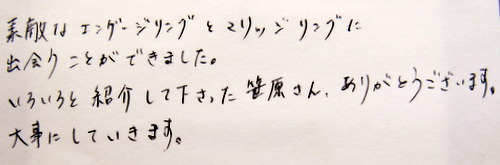 素敵なエンゲージリングとマリッジリングに
出会うことができました。
いろいろと紹介して下さった笹原さん、ありがとうございます。
大事にしていきます。